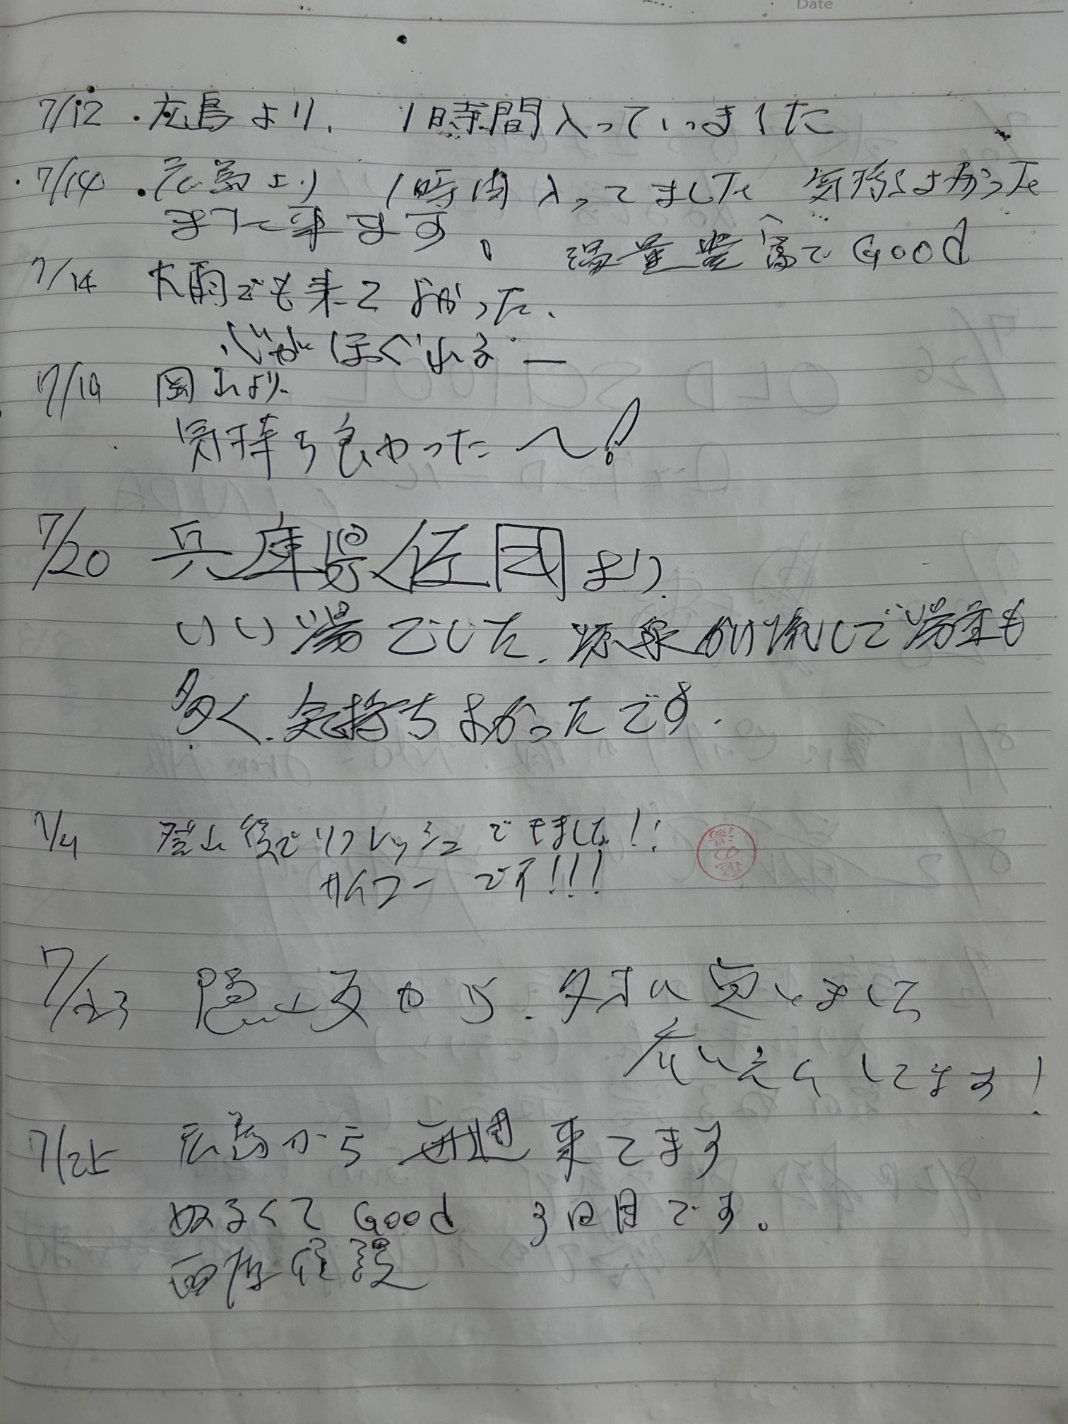 Date
7/12 ・広島より、 1時間入っていました
・7/14 ・広島より 1時間入ってました 気持ちよかった
また来ます。 湯量豊富で Good
7/14 大雨でも来てよかった、
心がほぐれるー
7/19 岡山より、
気持ち良かったー!
7/20 兵庫県 より、
いい湯でした。源泉かけ流しで湯量も
多く、気持ちよかったです。
登山後でリフレッシュできました!!
サイコーです!!!
7/23 から、
してます!
7/25 広島から毎週来てます
ぬるくて Good 3回目です。